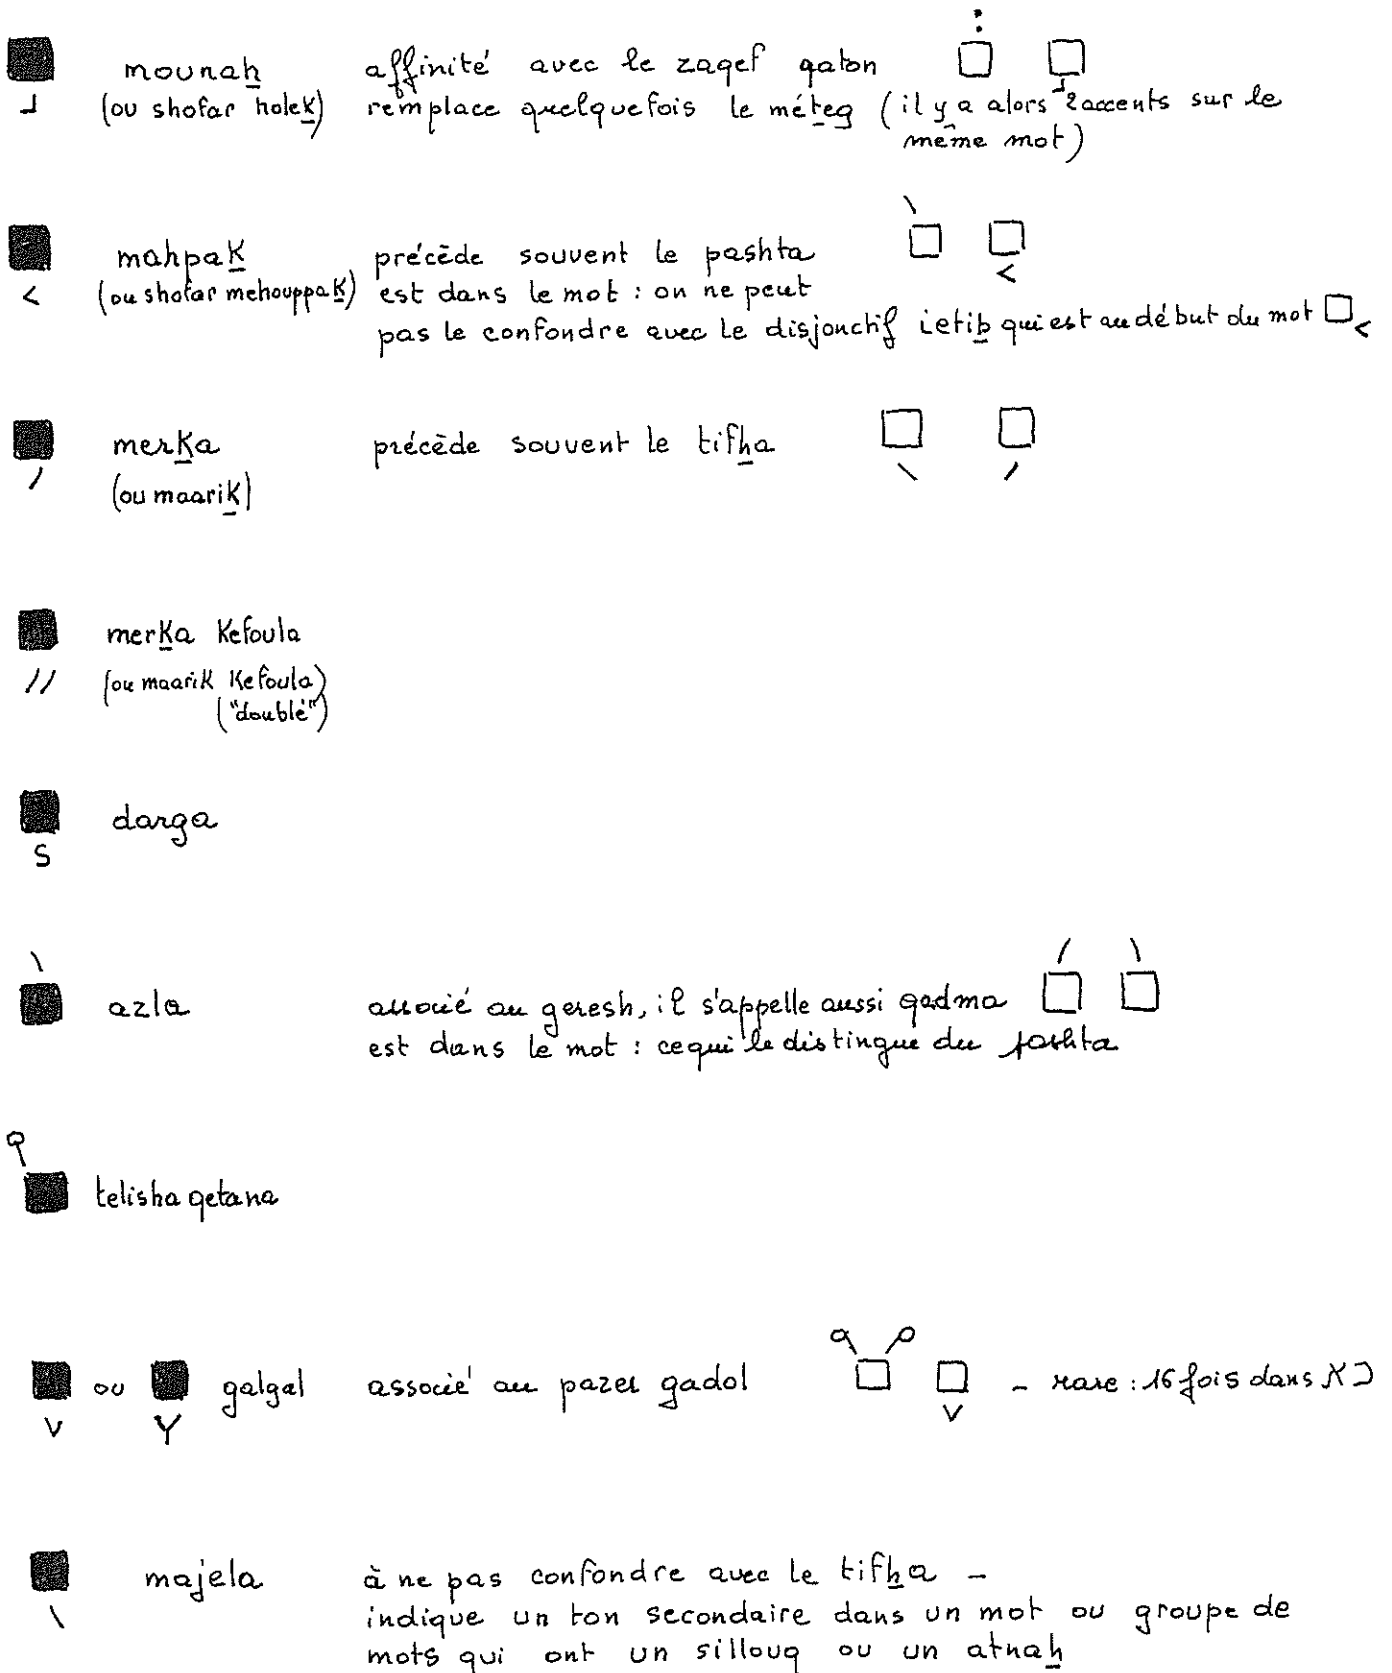 mounaẖ affinité avec le zaqef qaton
(ou shofar holeḵ) remplace quelquefois le méṯeg̱ (il y a alors 2 accents sur le
même mot)
mahpaḵ précède souvent le pashta
(ou shofar mehouppaḵ) est dans le mot : on ne peut
pas le confondre avec le disjonctif ietiḇ qui est au début du mot
merḵa précède souvent le tifẖa
(ou maariḵ)
merḵa Kefoula
(ou maariK Kefoula)
("doublé")
darga
azla associé au geresh, il s'appelle aussi qadma
est dans le mot : ce qui le distingue du pashta
telisha qetana
ou galgal associé au pazer gadol – rare : 16 fois dans
majela à ne pas confondre avec le tifẖa –
indique un ton secondaire dans un mot ou groupe de
mots qui ont un sillouq ou un atnaẖ